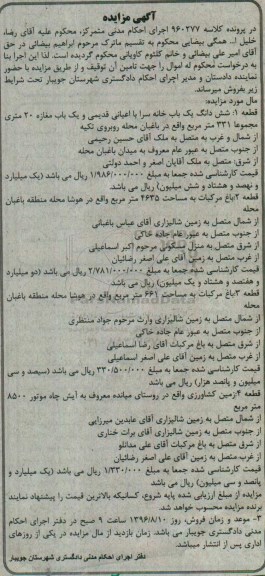 آگهی مزایده
در پرونده کلاسه ۹۶۰۲۷۷ اجرای احکام مدنی متمرکز، محکوم علیه آقای رضا،
خلیل ا... همگی بیضایی محکوم به تقسیم ماترک مرحوم ابراهیم بیضائی در حق
آقای امیر علی بیضائی و خانم کلثوم کاویانی محکوم گردیده است. لذا این اجرا بنا
به درخواست محکوم له اموال را جهت تامین آن توقیف و از طریق مزایده با حضور
نماینده دادستان و مدیر اجرای احکام دادگستری شهرستان جویبار تحت شرایط
زیر بفروش میرساند.
مال مورد مزایده:
قطعه ۱: شش دانگ یک باب خانه سرا با اعیانی قدیمی و یک باب مغازه ۲۰ متری
مجموعا ۲۳۱ متر مربع واقع در باغبان محله روبروی تکیه
از شمال و غرب به متصل به ملک آقای حسین رحیمی
از جنوب متصل به عبور عام معروف به میدان باغبان محله
از شرق: متصل به ملک آقایان اصغر و احمد دولتی
قیمت کارشناسی شده جمعا به مبلغ ۱/۹۸۶/۰۰۰/۰۰۰ ریال می باشد (یک میلیارد
و نهصد و هشتاد و شش میلیون) ریال می باشد.
قطعه ۲باغ مرکبات به مساحت ۴۶۳۵ متر مربع واقع در هوشا محله منطقه باغبان
محله
از شمال متصل به زمین شالیزاری آقای عباس باغبانی
از جنوب متصل به عبور عام جاده خاکی
از شرق متصل به منزل مسکونی مرحوم اکبر اسماعیلی
از غرب متصل به زمین آقای علی اصغر رضائیان
قیمت کارشناسی شده جمعا به مبلغ ۲/۷۸۱/۰۰۰/۰۰۰ ریال می باشد (دو میلیارد
و هفتصد و هشتاد و یک میلیون) ریال می باشد
قطعه ۳باغ مرکبات به مساحت ۶۶۱ متر مربع واقع در هوشا محله منطقه باغبان
محله
از شمال متصل به زمین شالیزاری وارث مرحوم جواد منتظری
از جنوب متصل به عبور عام جاده خاکی
از شرق متصل به باغ مرکبات آقای رضا اسماعیلی
از غرب متصل به زمین آقای علی اصغر اسماعیلی
قیمت کارشناسی شده جمعا به مبلغ ۳۳۰/۵۰۰/۰۰۰ ریال می باشد (سیصد و سی
میلیون و پانصد هزار) ریال می باشد
قطعه ۴زمین کشاورزی واقع در روستای میانده معروف به آیش چاه موتور ۸۵۰۰
متر مربع
از شمال متصل به زمین شالیزاری آقای عابدین میرزایی
از جنوب متصل به زمین شالیزاری آقای برات خناری
از شرق متصل به باغ مرکبات آقای علی مدانلو
از غرب متصل به زمین آقای علی اصغر رضائیان
قیمت کارشناسی شده جمعا به مبلغ ۱/۳۳۰/۰۰۰ ریال می باشد (یک میلیارد و
پانصد و سی میلیون) ریال می باشد
مزایده از مبلغ ارزیابی شده پایه شروع، کسانیکه بالاترین قیمت را پیشنهاد نمایند
برنده مزایده محسوب خواهد شد.
۳- موعد و زمان فروش، روز ۱۳۹۶/۸/۱۰ ساعت ۹ صبح در دفتر اجرای احکام
مدنی دادگستری جویبار می باشد. زمان بازدید از مال مزایده در یکی از روزهای
اداری پس از انتشار میباشد.
دفتر اجرای احکام مدنی دادگستری شهرستان جویبار